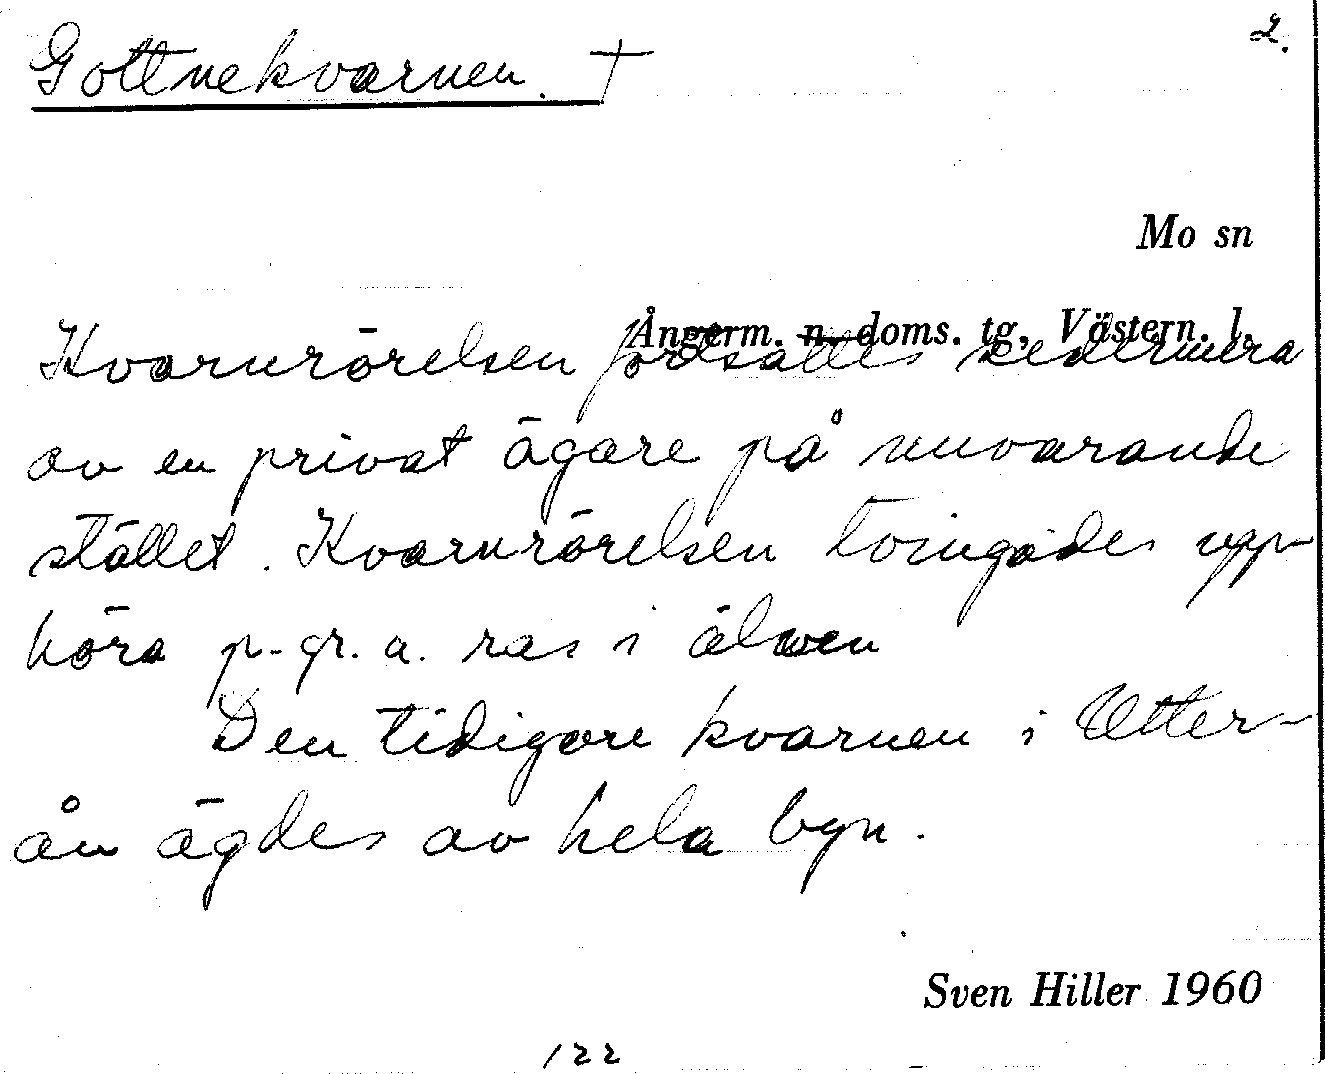 2.
Gottnekvarnen. †
Mo sn
Ångerm. n. doms. tg, Västern. l.
Kvarnrörelsen fortsattes sedermera
av en privat ägare på nuvarande
stället. Kvarnrörelsen tvingades upp-
höra p.gr.a. ras i älven
Den tidigare kvarnen i Utter-
ån ägdes av hela byn.
Sven Hiller 1960
122